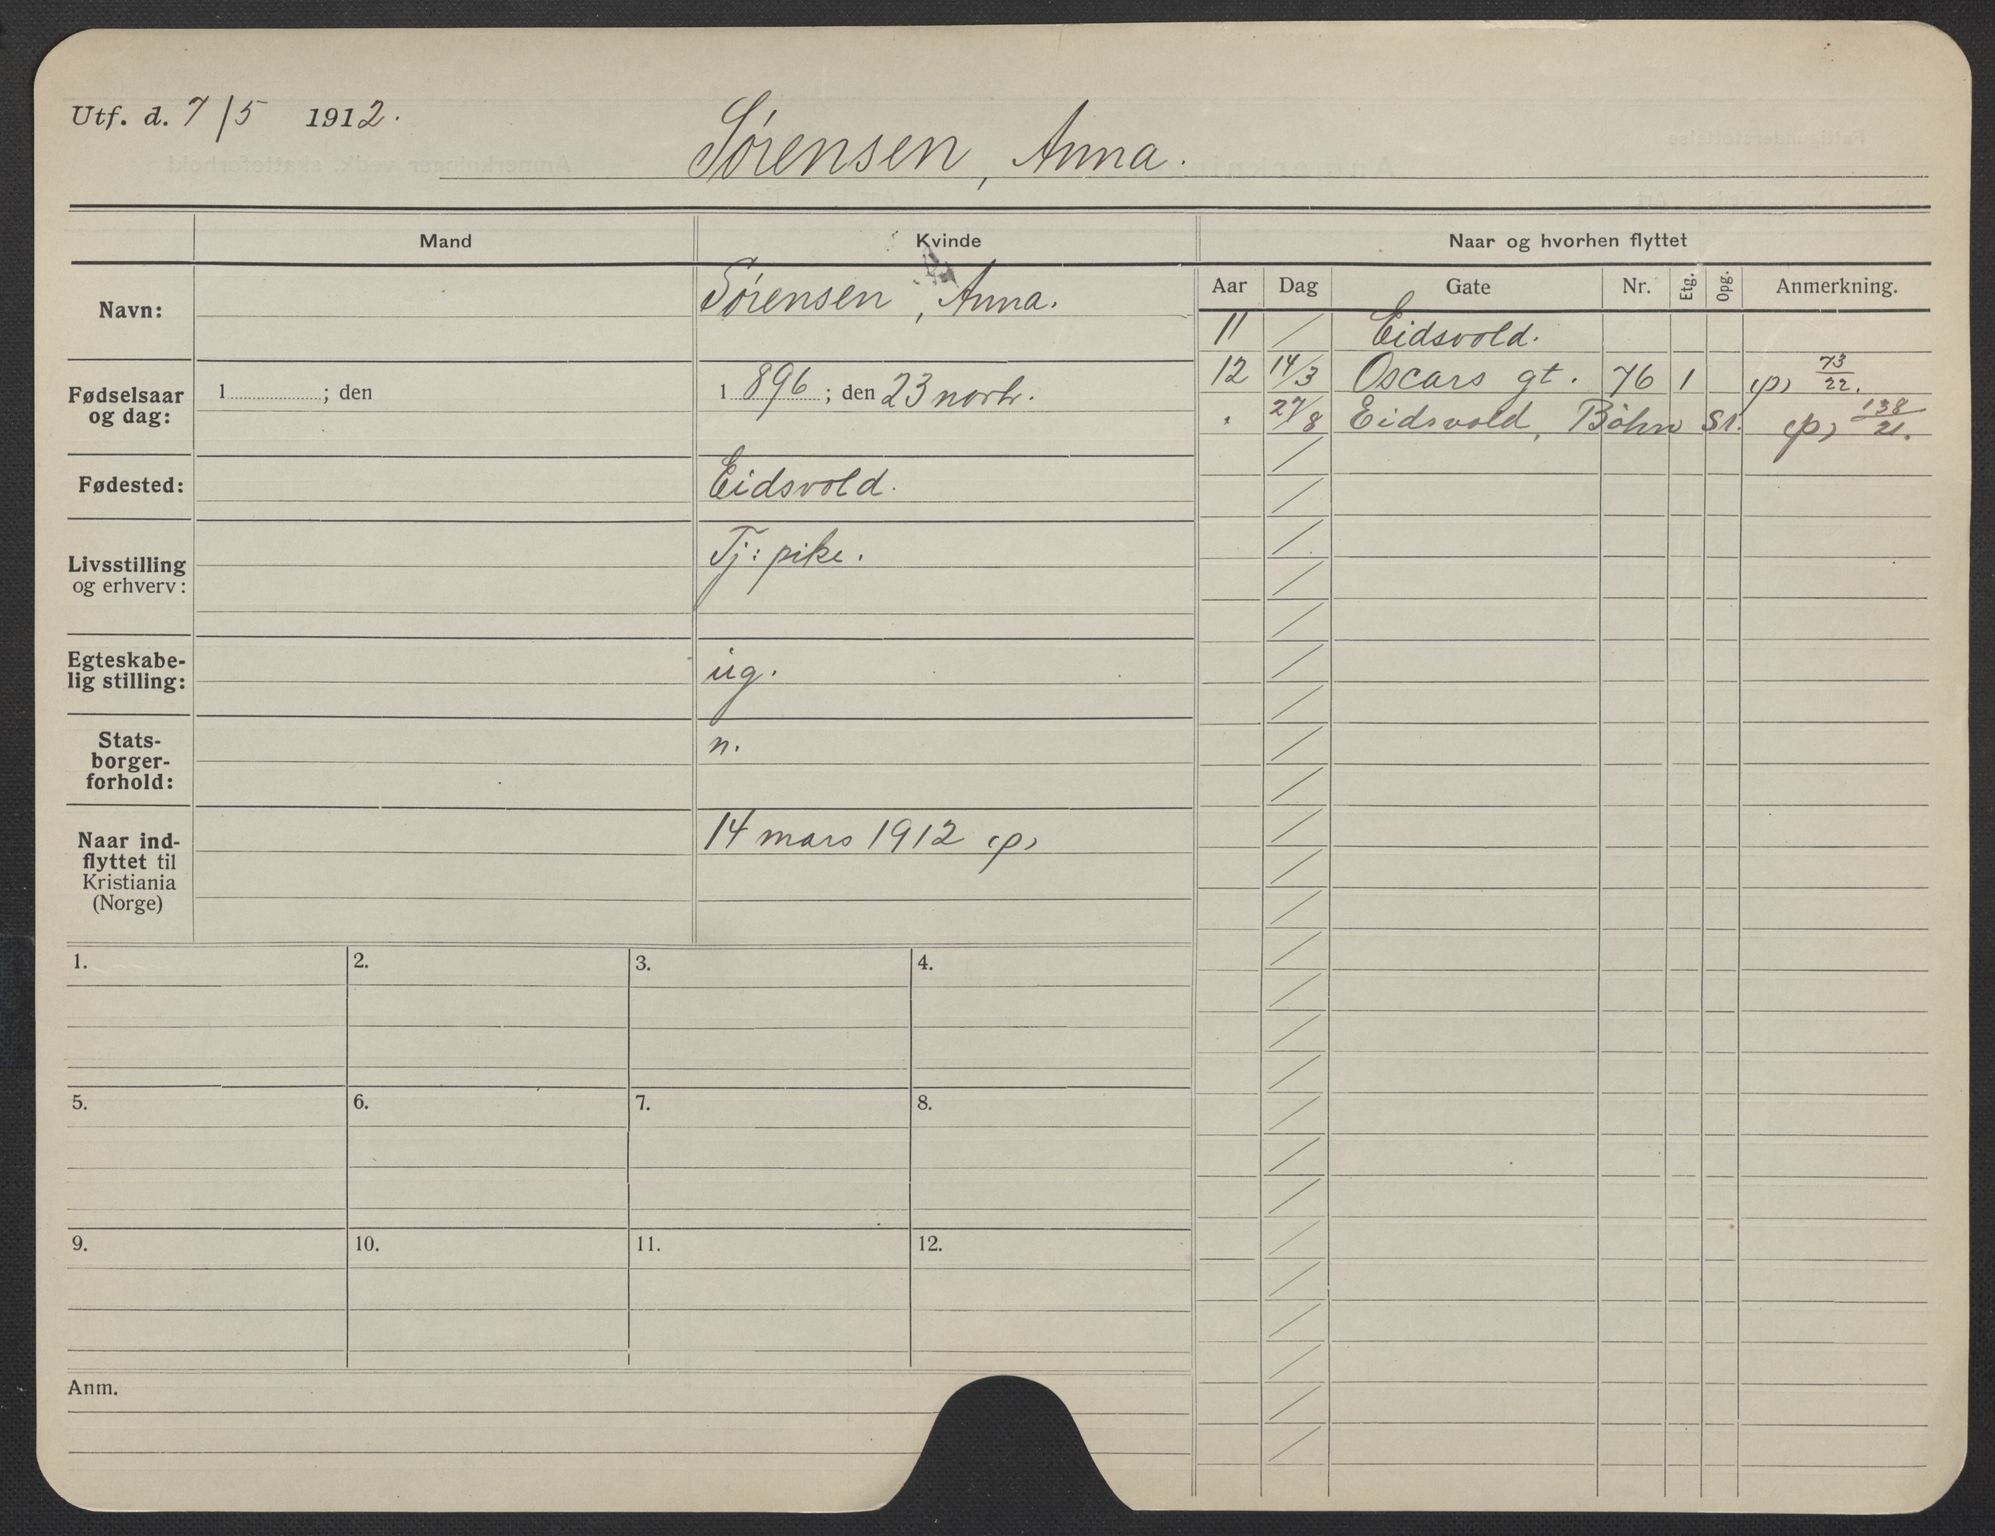 Utf. d. 7/5 1912.
Sørensen, Anna.
Mand
Kvinde
Naar og hvorhen flyttet
Navn:
Sørensen, Anna.
Fødselsaar
og dag:
1 ; den
1 896 ; den 23 novbr.
Fødested:
Eidsvold.
Livsstilling
og erhverv:
Tj: pike.
Egteskabe-
lig stilling:
ug.
Stats-
borger-
forhold:
n.
Naar ind-
flyttet til
Kristiania
(Norge)
14 mars 1912 (p)
Aar Dag Gate Nr. Etg. Opg. Anmerkning.
11 / Eidsvold.
12 14/3 Oscars gt. 76 1 (p) 73/22.
" 27/8 Eidsvold, Bøhn St. (p) 138/21.
1. 2. 3. 4.
5. 6. 7. 8.
9. 10. 11. 12.
Anm.